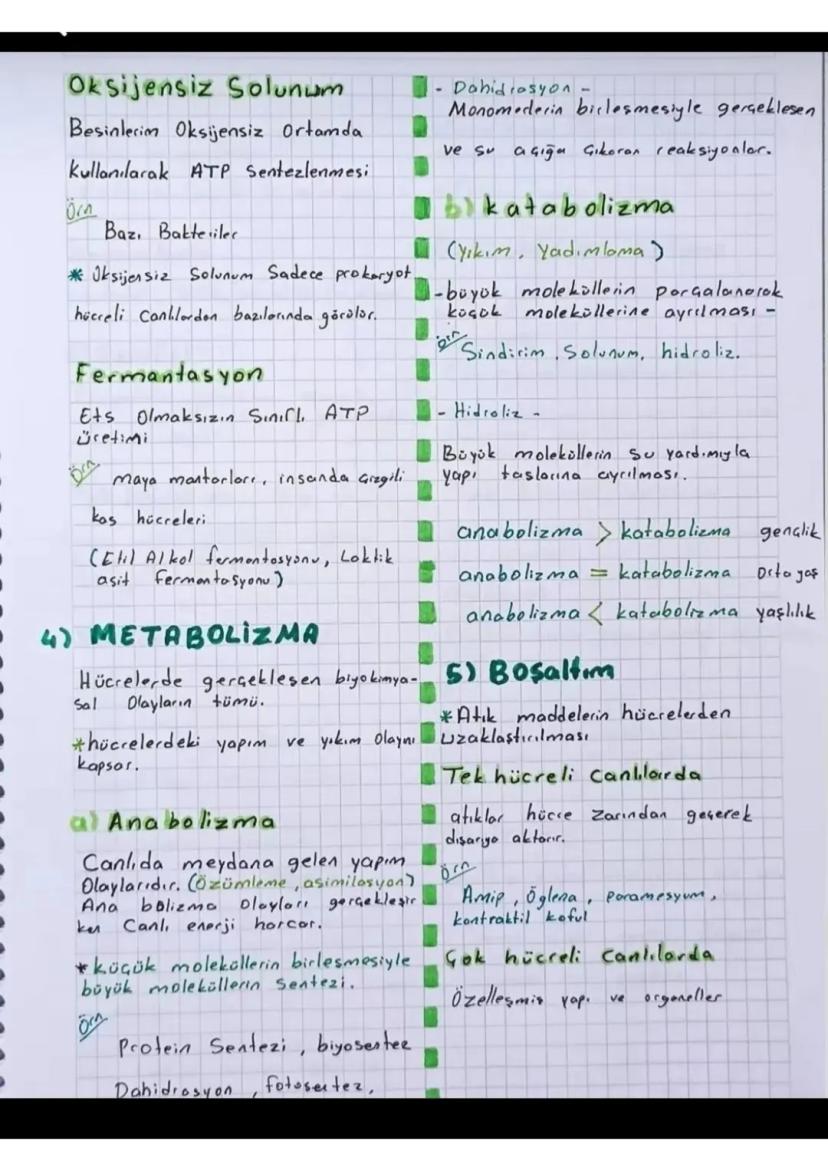 Oksijensiz Solunum
Besinlerim Oksijensiz Ortamda
Kullanılarak ATP Sentezlenmesi
Örn
Bazı Bakteriler
* Oksijensiz Solunum Sadece prokaryot
hücreli Canlılardan bazılarında görülür.
Fermantasyon
Ets Olmaksızın Sınırlı ATP
üretimi
Örn
maya mantarları, insanda çizgili
kas hücreleri
(Etil Alkol fermantasyonu, Laktik
asit fermantasyonu)
4) METABOLİZMA
Hücrelerde gerçekleşen biyokimya-
sal Olayların tümü.
*hücrelerdeki yapım ve yıkım Olaynı
kapsar.
a) Anabolizma
Canlıda meydana gelen yapım
Olaylarıdır. (Özümleme, asimilasyon)
Ana bolizma Olayları gerçekleşir
ken Canlı enerji harcar.
*küçük moleküllerin birleşmesiyle
büyük moleküllerin Sentezi.
Örn
Protein Sentezi, biyosentez
Dahidrasyon, fotosentez,
- Dahidrasyon -
Monomerlerin birleşmesiyle gerçekleşen
ve su açığa Çıkaran reaksiyonlar.
b) katabolizma
(Yıkım, Yadımlama)
-büyük moleküllerin parçalanarak
küçük moleküllerine ayrılması -
Örn
Sindirim, Solunum, hidroliz.
- Hidroliz -
Büyük moleküllerin su yardımıyla
yapı taşlarına ayrılması.
anabolizma > katabolizma gençlik
anabolizma = katabolizma Orta yaş
anabolizma < katabolizma yaşlılık
5) Boşaltım
*Atık maddelerin hücrelerden
Uzaklaştırılması
Tek hücreli Canlılarda
atıklar hücre Zarından geçerek
dışarıya aktarır.
Örn
Amip, Öglena, paramesyum,
kontraktil koful
Çok hücreli Canlılarda
Özelleşmiş yapı ve organeller